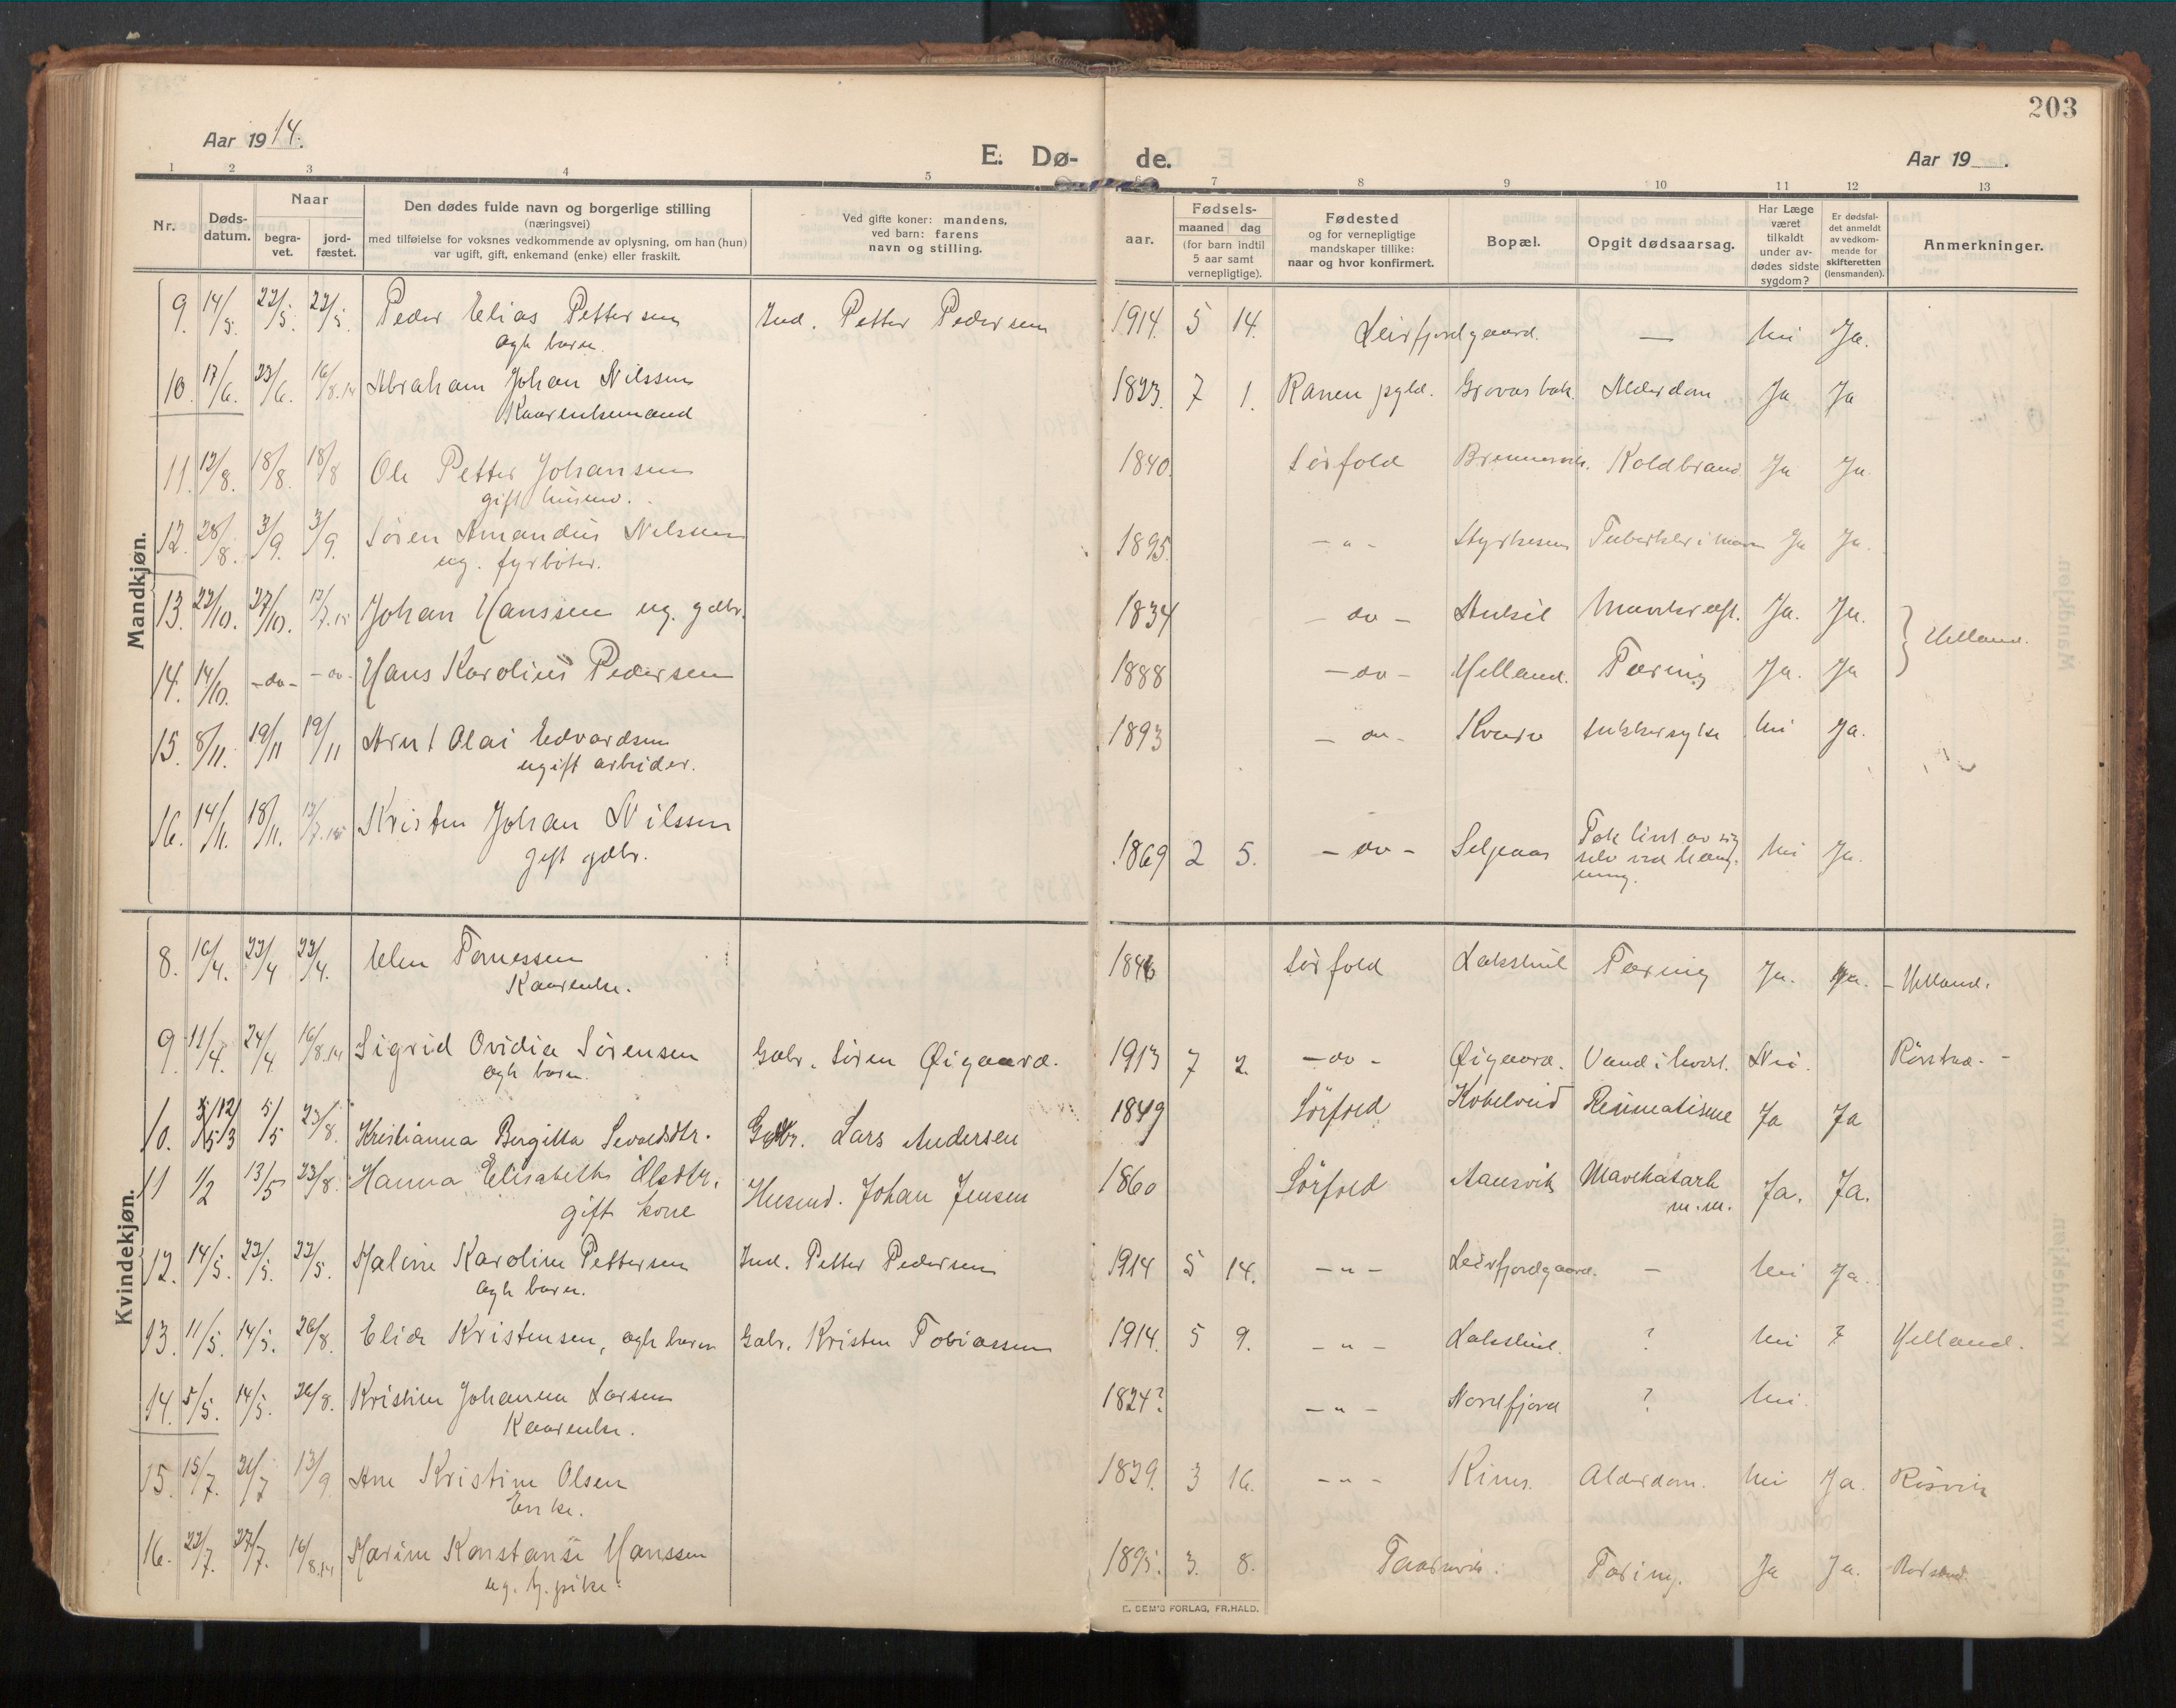 203
Aar 1914.
E. Dø- de.
Aar 19 .
1 2 3 4 5 6 7 8 9 10 11 12 13
Nr.
Døds-
datum.
Naar
begra-
vet.
jord-
fæstet.
Den dødes fulde navn og borgerlige stilling
(næringsvei)
med tilføielse for voksnes vedkommende av oplysning, om han (hun)
var ugift, gift, enkemand (enke) eller fraskilt.
Ved gifte koner: mandens,
ved barn: farens
navn og stilling.
Fødsels-
aar.
maaned dag
(for barn indtil
5 aar samt
vernepligtige).
Fødested
og for vernepligtige
mandskaper tillike:
naar og hvor konfirmert.
Bopæl.
Opgit dødsaarsag.
Har Læge
været
tilkaldt
under av-
dødes sidste
sygdom?
Er dødsfal-
det anmeldt
av vedkom-
mende for
skifteretten
(lensmanden).
Anmerkninger.
Mandkjøn.
9. 14/5. 22/5. 22/5. Peder Elias Pettersen Ind. Petter Pedersen 1914. 5 14. Leirfjordgaard. — Nei Ja.
ægte barn.
10. 17/6. 23/6. 16/8.14 Abraham Johan Nilssen 1823. 7 1. Ranen pgld. Grovasbak Alderdom Ja Ja
Kaarenkemand
11. 12/8. 18/8. 18/8 Ole Petter Johansen 1840. Sørfold Koldbrand Ja Ja
gift husmd.
12. 28/8. 3/9. 3/9. Søren Amandus Nilssen 1895. -"- Styrkesnes Tuberkler i maven Ja Ja.
ug. fyrbøter.
13. 22/10. 27/10. 12/7.15 Johan Hanssen ug. gdbr. 1834 - do - Mavekræft. Ja. Ja.
Helland.
14. 14/10. -do- -do- Hans Karolius Pedersen 1888 -do- Helland. Tæring Ja. Ja
15. 8/11. 19/11 19/11 Arnt Olai Edvardsen 1893 - do - Kvarv Sukkersyke Nei Ja.
ugift arbeider.
16. 14/11. 18/11. 12/7.15 Kristen Johan Nilssen 1869 2 5. - do - Seljeaas Tok livet av sig
selv ved hæng-
ning. Nei Ja.
gift gdbr.
Kvindekjøn.
8. 16/4. 22/4 22/4. Elen Tomessen 1846 Sørfold Lakshol Tæring Ja. Ja. - Helland.
Kaarenke.
9. 11/4. 24/4. 16/8.14 Sigrid Ovidia Sørensen Gdbr. Søren Øigaard. 1913 7 2. -do- Øigaard. Vand i hodet. Nei. Rørstad. -
ægte barn.
10. 12/13 5/5 23/8. Kristianna Bergitta Sevaldsdtr. Gdbr. Lars Andersen 1849 Sørfold Kobelveid Reumatisme Ja Ja
11 1/2 13/5 23/8. Hanna Elisabeth Olsdtr. Husmd. Johan Jensen 1860 Sørfold Aansvik Mavekatarh
m.m. Ja. Ja.
gift kone
12. 14/5. 22/5. 22/5. Maline Karoline Pettersen Ind. Petter Pedersen 1914 5 14. -"- Leirfjordgaard. - Nei Ja.
ægte barn.
13. 11/5. 14/5. 26/8. Elida Kristensen, ægte barn Gdbr. Kristen Tobiassen 1914. 5 9. -"- Lakshol. ? Nei ? Helland.
14. 5/5. 14/5. 26/8. Kristine Johanna Larsen 1824? -"- Nordfjord ? Nei.
Kaarenke.
15. 15/7. 21/7 13/9 Ane Kristine Olsen 1829. 3 16. -"- Rines. Alderdom. Nei Ja. Røsvik
Enke.
16. 22/7. 27/7. 16/8.14 Marine Konstanse Hanssen 1895. 3. 8. Taarnvik. Tæring. Ja Ja. Rørstad.
ug. tj. pike.
E. SEM'S FORLAG, FR.HALD.